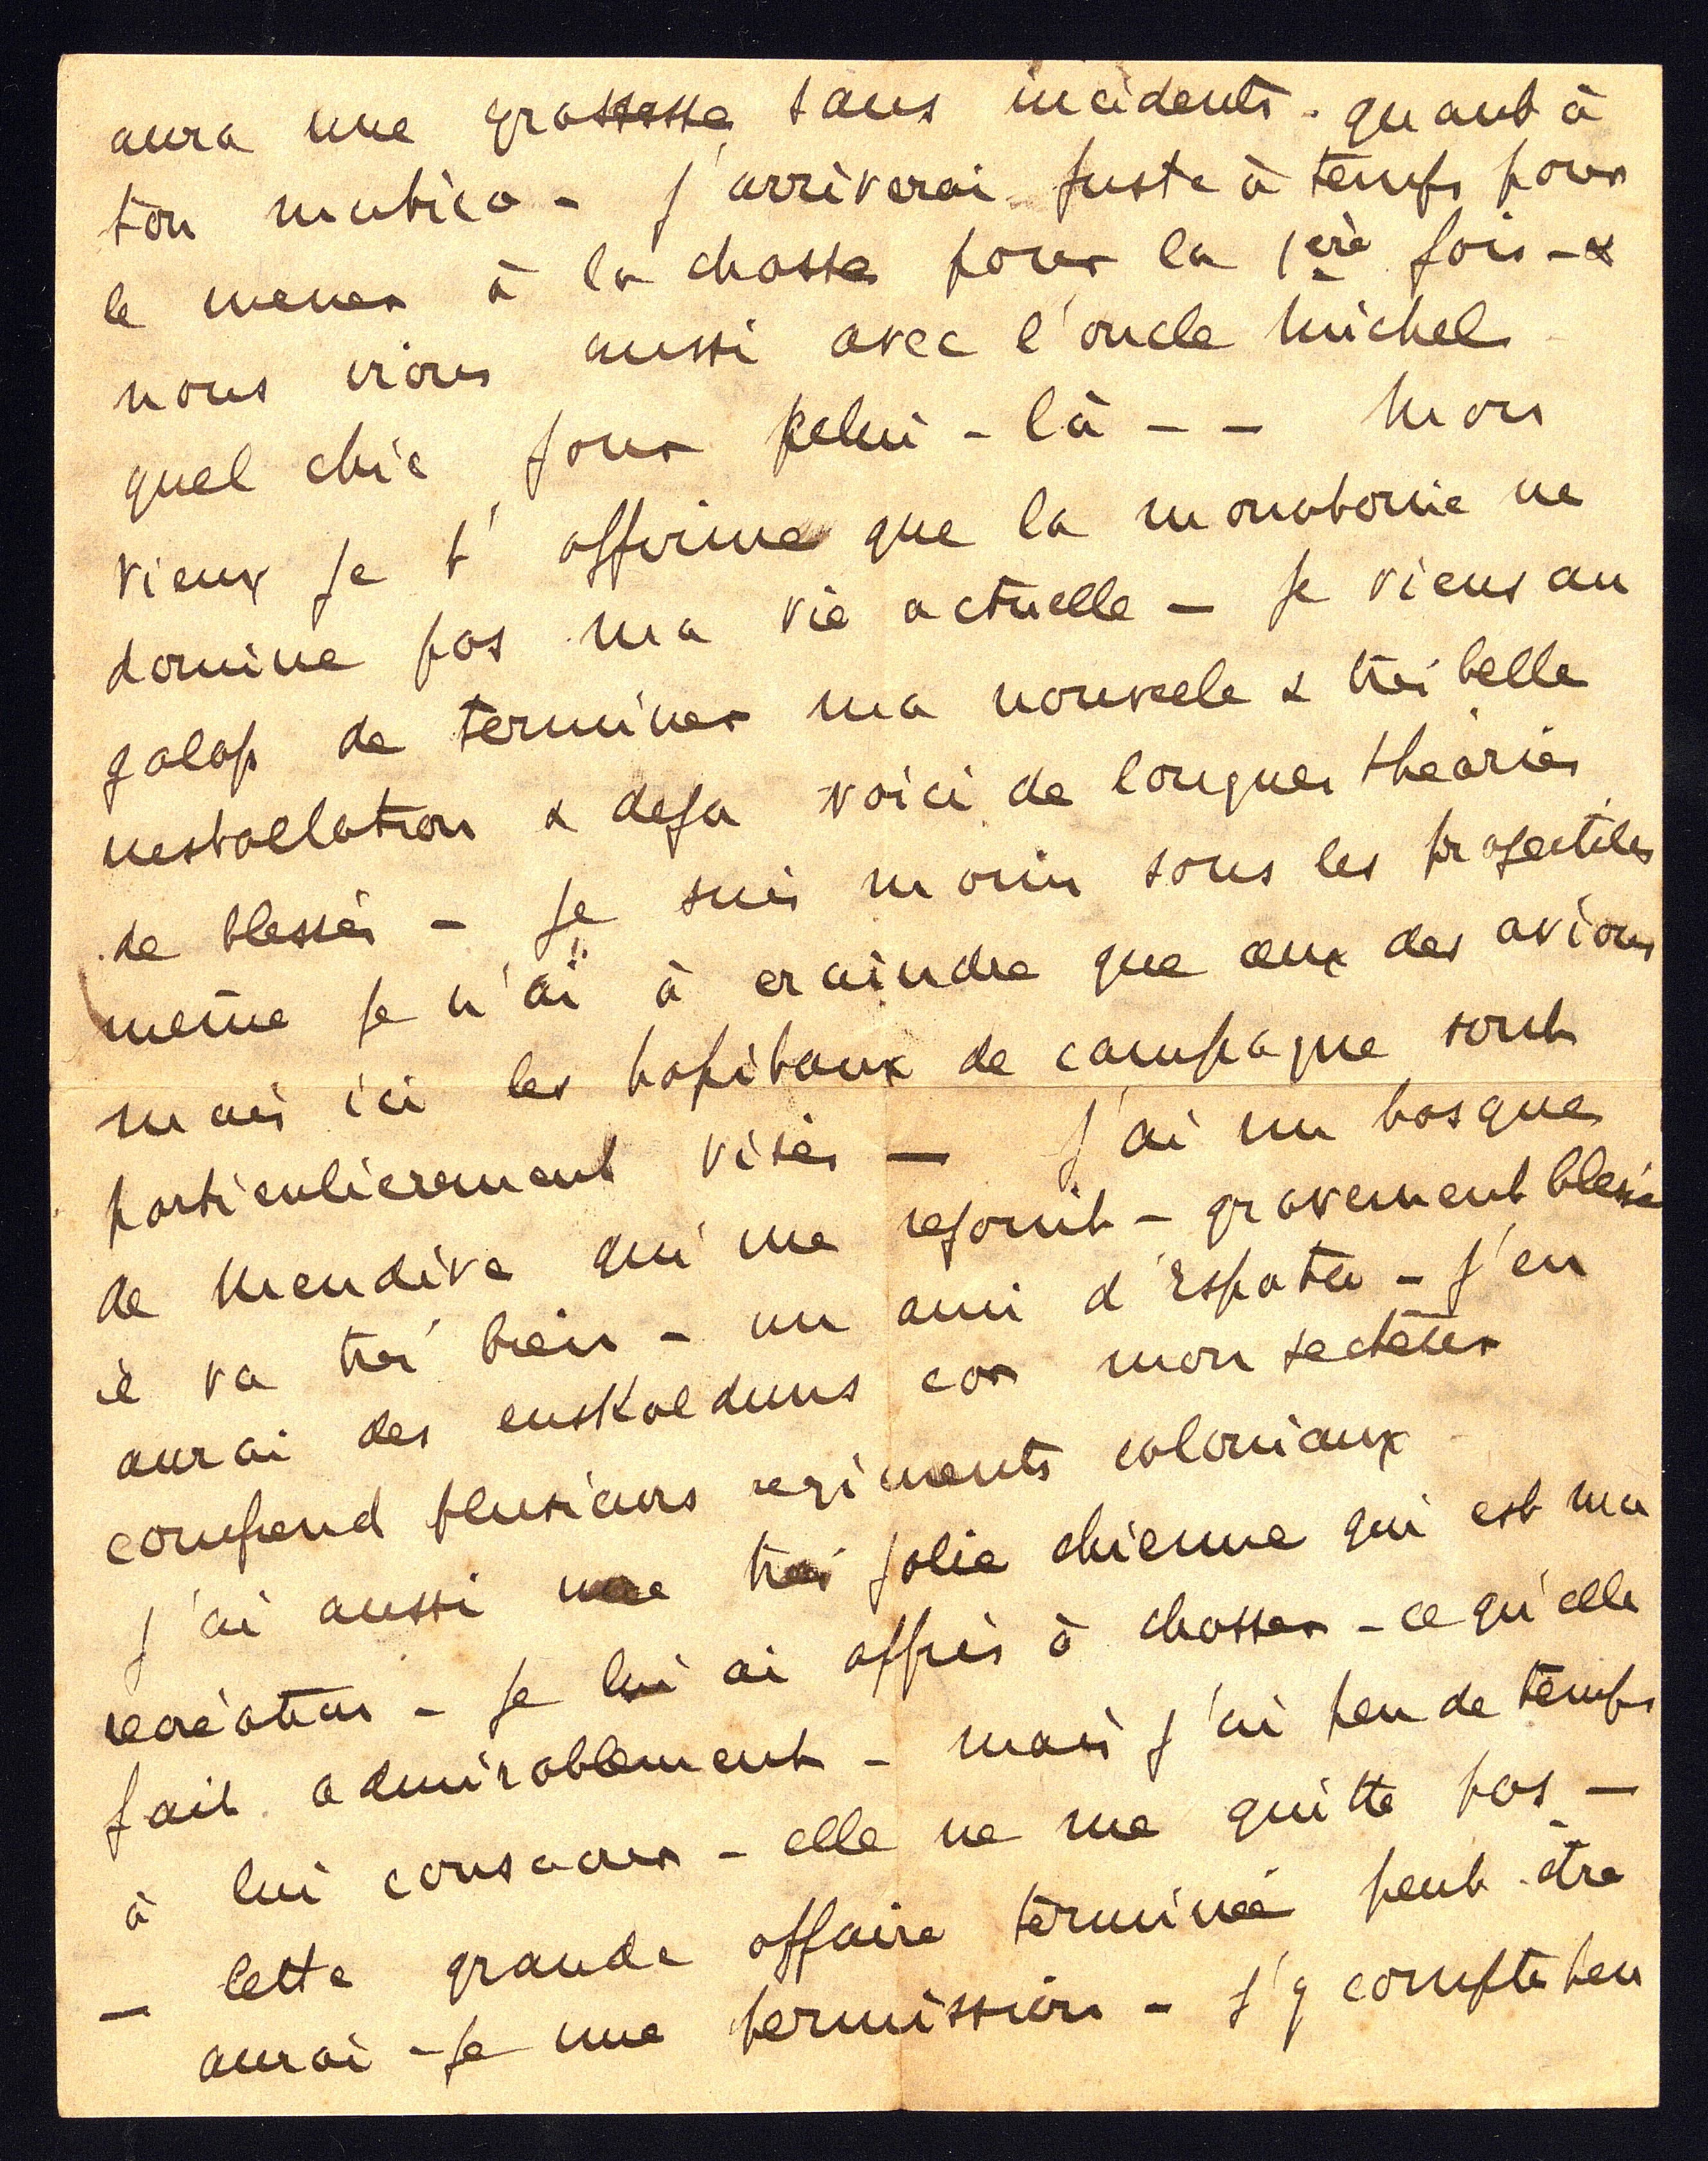 aura une grossesse sans incidents. quant à
ton mutico - j'arriverai juste à temps pour
le mener à la chasse pour la 1ère fois - &
nous irions aussi avec l'oncle Michel
quel chic jour celui-là - - Mon
vieux je t'affirme que la monotonie ne
domine pas ma vie actuelle - je viens au
galop de terminer ma nouvelle & très belle
installation & deja voici de longues théories
de blessés - je suis moins sous les projectiles
même je n'ai à craindre que ceux des avions
mais ici les hopitaux de campagne sont
particulierement visés — j'ai un basque
de Mendive qui me rejouit - gravement blessé
il va très bien - un ami d'Espata - j'en
aurai des euskalduns car mon secteur
comprend plusieurs regiments coloniaux
j'ai aussi une très jolie chienne qui est ma
récréation - je lui ai appris à chasser - ce qu'elle
fait admirablement - mais j'ai peu de temps
à lui consacrer - elle ne me quitte pas -
- Cette grande affaire terminée peut être
aurai-je une permission - j'y compte peu